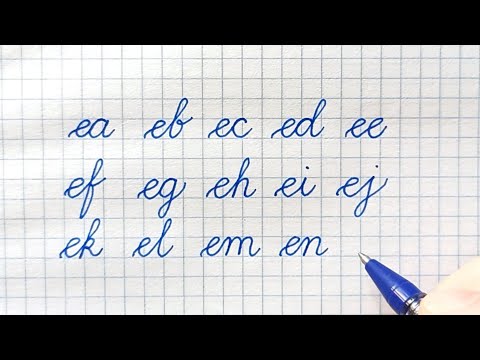 ea eb ec ed ee
ef eg eh ei ej
ek el em en